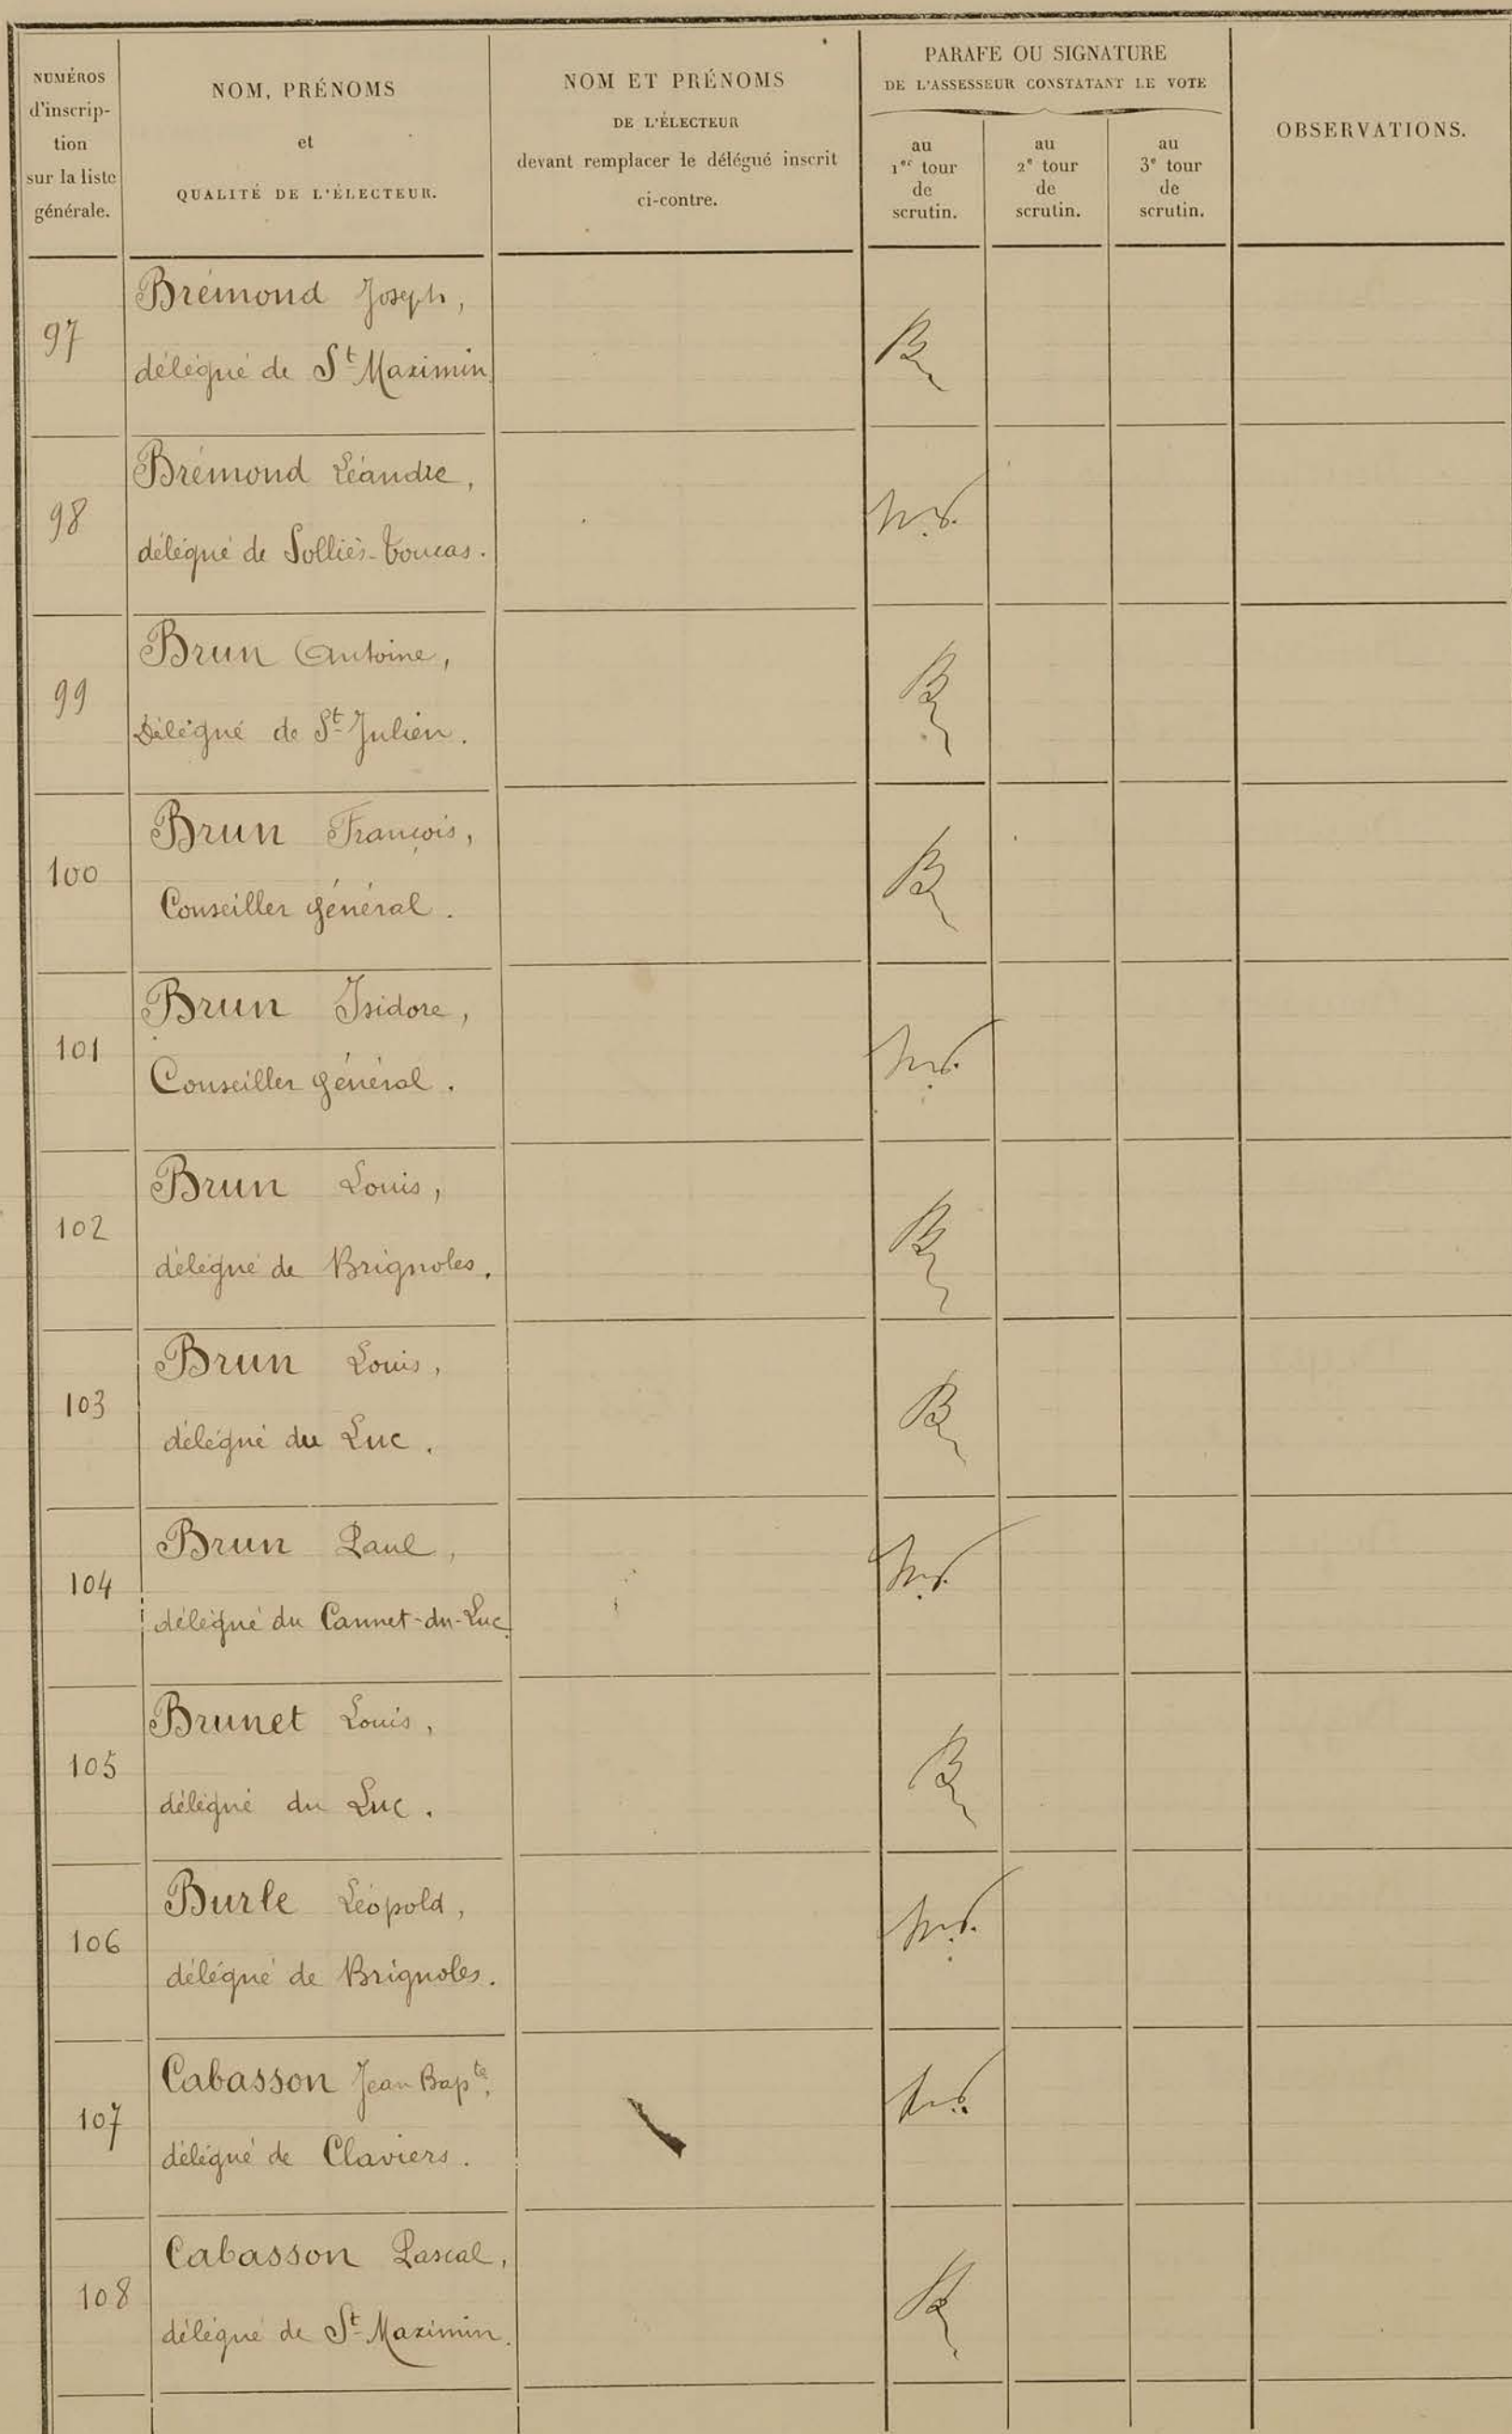 NUMÉROS
d'inscrip-
tion
sur la liste
générale.
NOM, PRÉNOMS
et
QUALITÉ DE L'ÉLECTEUR.
NOM ET PRÉNOMS
DE L'ÉLECTEUR
devant remplacer le délégué inscrit
ci-contre.
PARAFE OU SIGNATURE
DE L'ASSESSEUR CONSTATANT LE VOTE
au
1er tour
de
scrutin.
au
2e tour
de
scrutin.
au
3e tour
de
scrutin.
OBSERVATIONS.
97
Brémond Joseph,
délégué de St Maximin
98
Brémond Léandre,
délégué de Solliès-Toucas.
99
Brun Antoine,
Délégué de St Julien.
100
Brun François,
Conseiller général.
101
Brun Isidore,
Conseiller général.
102
Brun Louis,
délégué de Brignoles.
103
Brun Louis,
délégué du Luc.
104
Brun Paul,
délégué du Cannet-du-Luc.
105
Brunet Louis,
délégué du Luc.
106
Burle Léopold,
délégué de Brignoles.
107
Cabasson Jean Bapte,
délégué de Claviers.
108
Cabasson Pascal,
délégué de St Maximin.